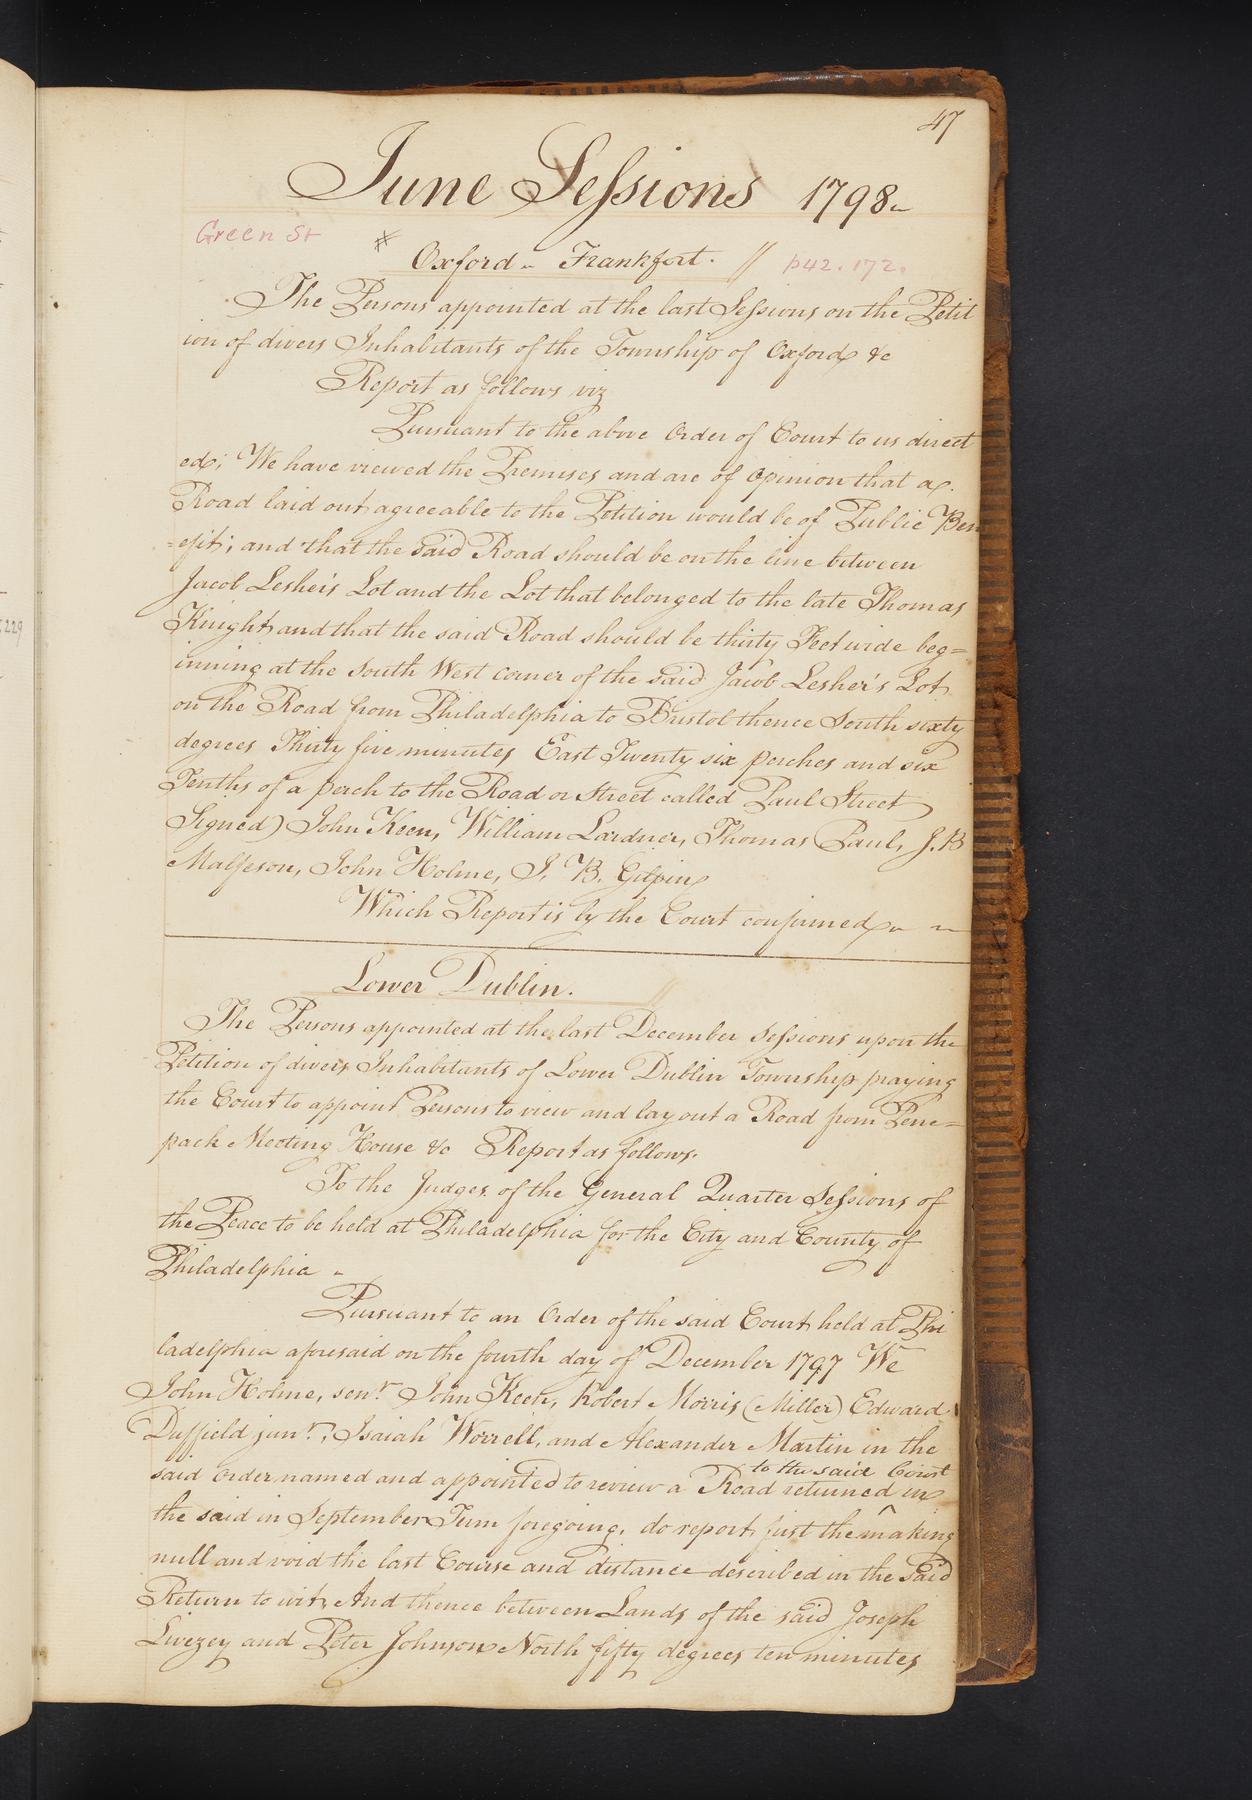 47
June Sessions 1798
Green St
# Oxford - Frankfort. // p42. 172.
The Persons appointed at the last Sessions on the Petit
ion of divers Inhabitants of the Township of Oxford &c
Report as follows viz
Pursuant to the above Order of Court to us direct
ed; We have viewed the Premises and are of Opinion that a
Road laid out agreeable to the Petition would be of Public Ben
=efit; and that the said Road should be on the line between
Jacob Lesher's Lot and the Lot that belonged to the late Thomas
Knight and that the said Road should be thirty Feet wide beg=
inning at the South West corner of the said Jacob Lesher's Lot
on the Road from Philadelphia to Bristol thence South sixty
degrees Thirty five minutes East Twenty six perches and six
Tenths of a perch to the Road or Street called Paul Street
Signed) John Keen, William Lardner, Thomas Paul, J. B
John Holme, B. Gilpin
Which Report is by the Court confirmed
229
Lower Dublin. //
The Persons appointed at the last December Sessions upon the
Petition of divers Inhabitants of Lower Dublin Township praying
the Court to appoint Persons to view and lay out a Road from Pene=
pack Meeting House &c Report as follows.
To the Judges of the General Quarter Sessions of
the Peace to be held at Philadelphia for the City and County of
Philadelphia -
Pursuant to an Order of the said Court held at Phi
ladelphia aforesaid on the fourth day of December 1797 We
John Holme, senr. John Keen, Robert Morris (Miller) Edward
Duffield junr., Isaiah Worrell, and Alexander Martin in the
to the said Court
said Order named and appointed to review a Road returned in
the said in September Term foregoing, do report, first the ^ making
null and void the last Course and distance described in the said
Return to wit, And thence between Lands of the said Joseph
Livezey and Peter Johnson North fifty degrees ten minutes